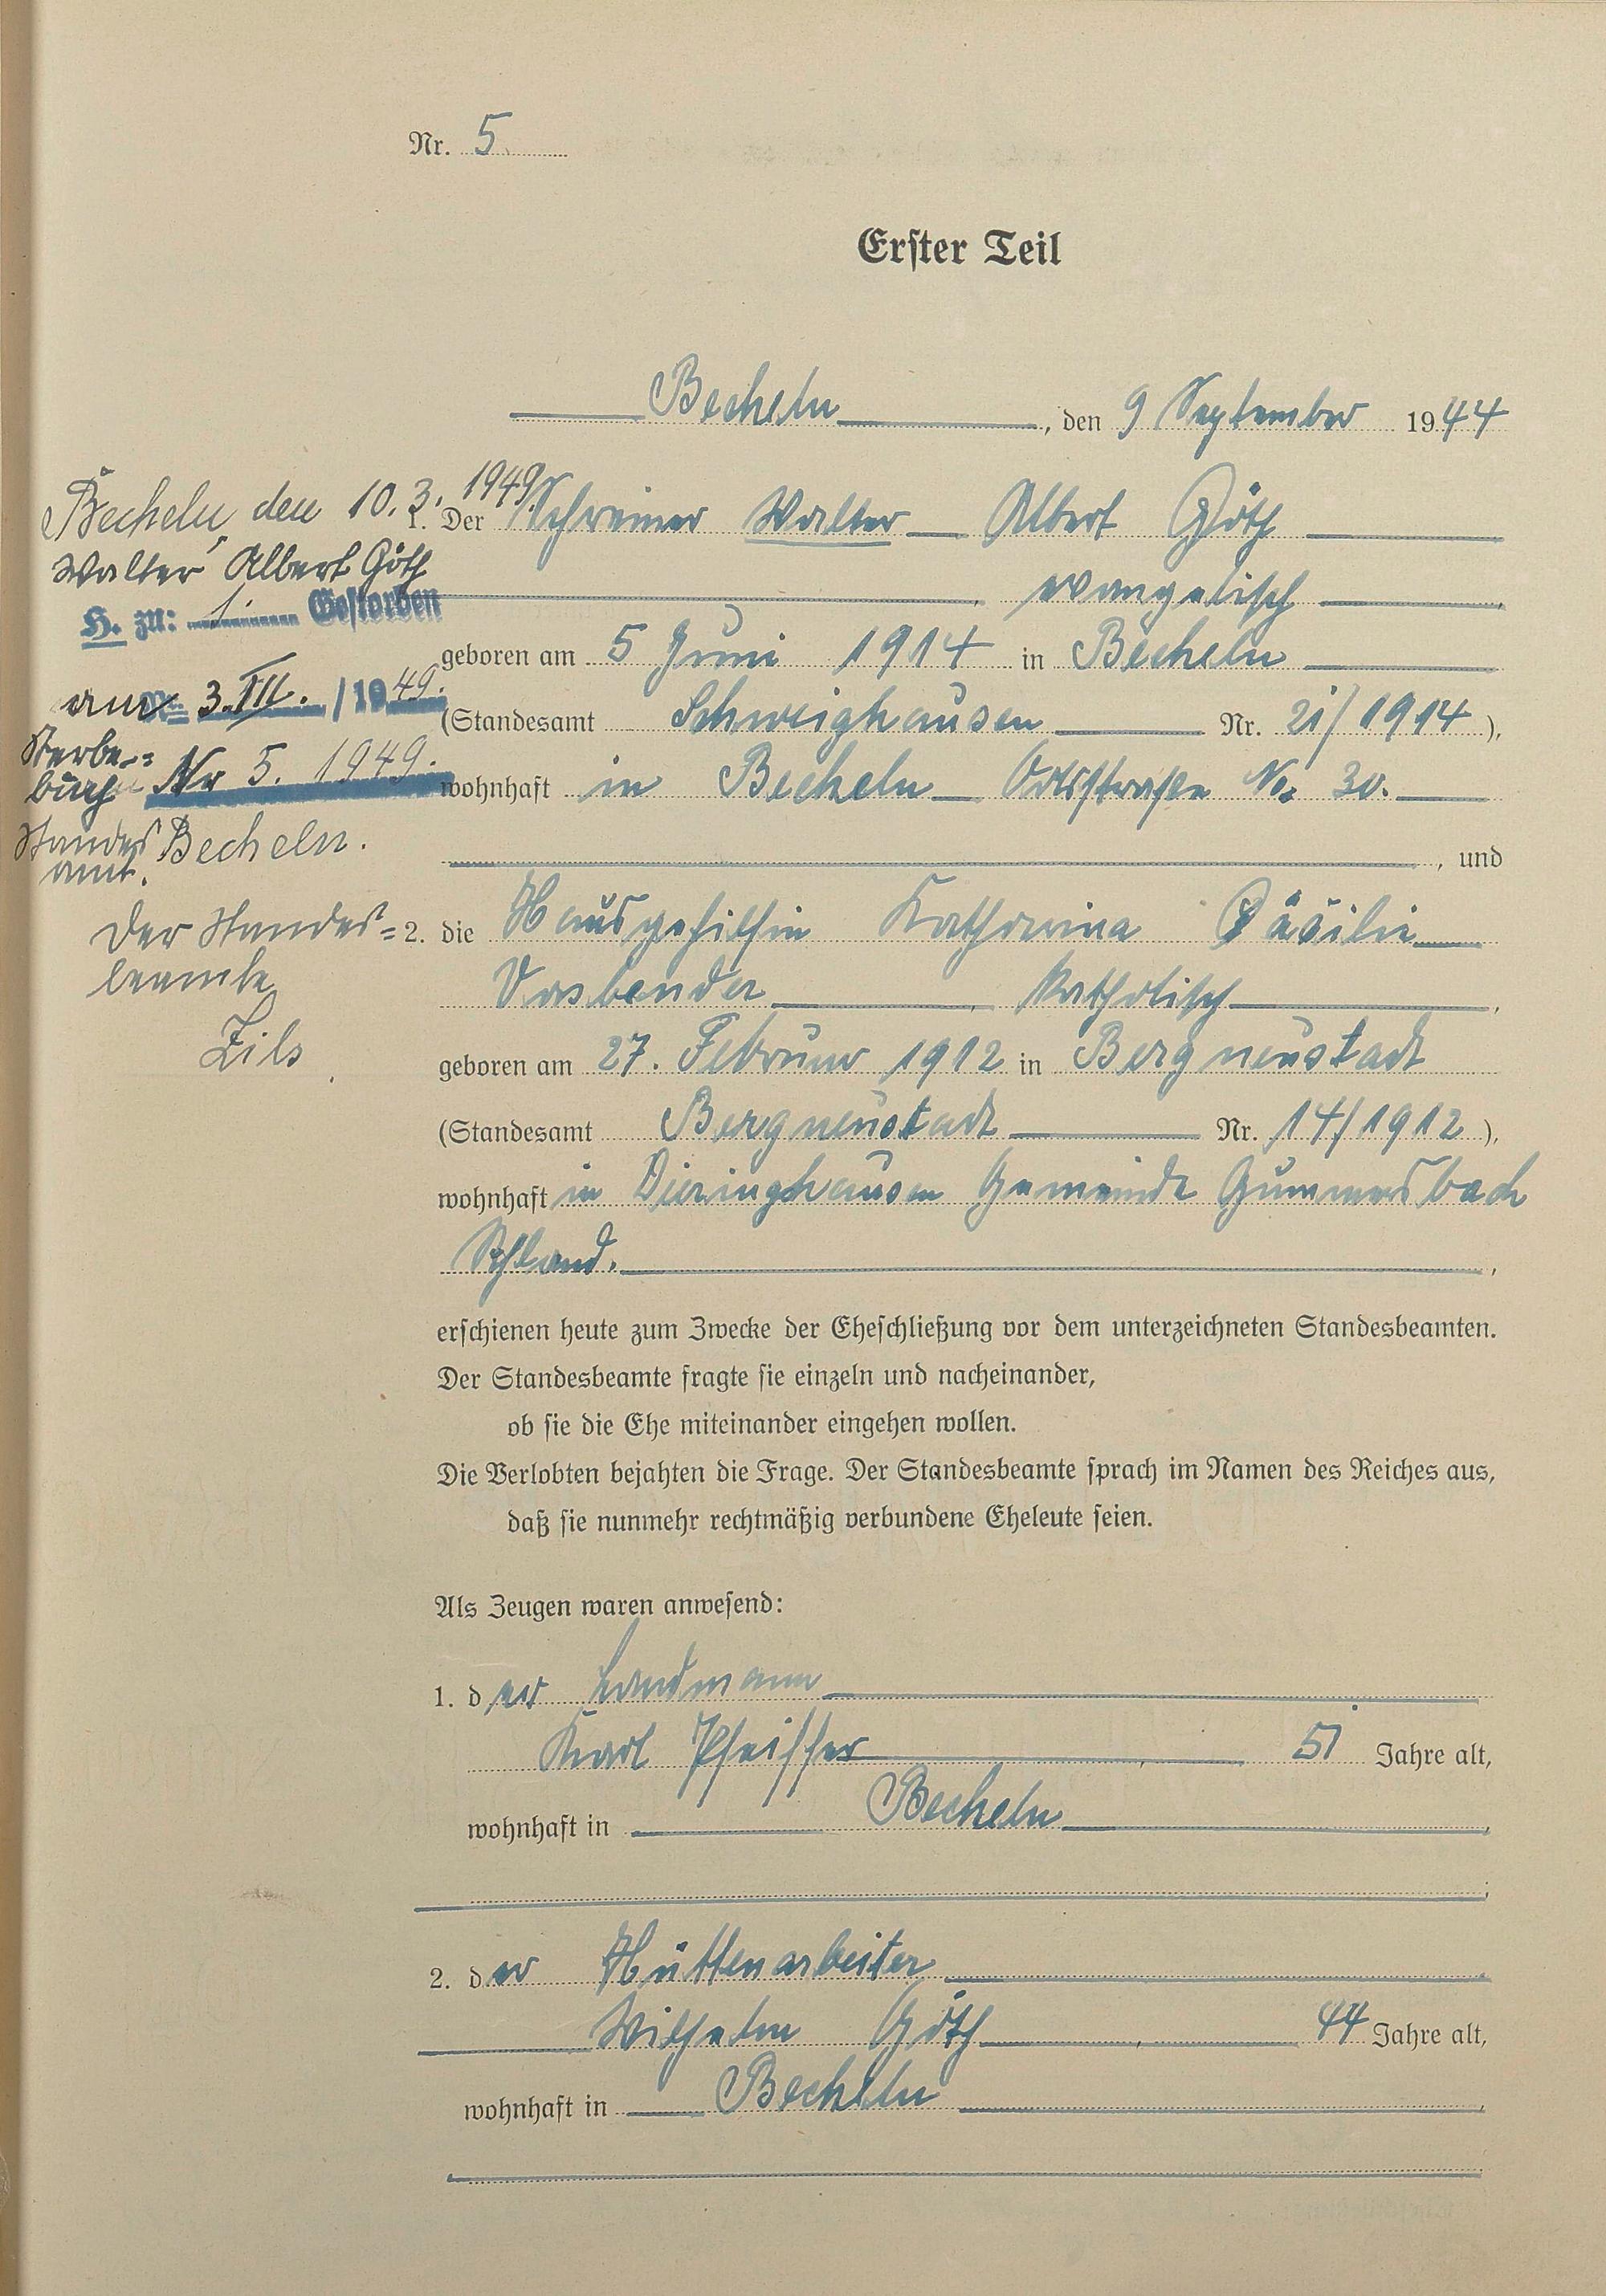 Nr. 5
Erster Teil
Becheln, den 9 September 1944
Becheln, den 10. 3. 1949.
Walter Albert Göth
H. zu: 1. Gestorben
am 3. III. / 1949.
Sterbe-
buch Nr 5. 1949.
Standes
amt. Becheln.
Der Standes=
beamte
Zils
1. Der Schreiner Walter Albert Göth
evangelisch,
geboren am 5 Juni 1914 in Becheln
(Standesamt Schweighausen Nr. 21/1914),
wohnhaft in Becheln Ortsstraße No: 30.
, und
2. die Hausgehilfin Katharina Cäcilie
Vasbender, katholisch,
geboren am 27. Februar 1912 in Bergneustadt
(Standesamt Bergneustadt Nr. 14/1912),
wohnhaft in Dieringhausen Gemeinde Gummersbach
Rhland.,
erschienen heute zum Zwecke der Eheschließung vor dem unterzeichneten Standesbeamten.
Der Standesbeamte fragte sie einzeln und nacheinander,
ob sie die Ehe miteinander eingehen wollen.
Die Verlobten bejahten die Frage. Der Standesbeamte sprach im Namen des Reiches aus,
daß sie nunmehr rechtmäßig verbundene Eheleute seien.
Als Zeugen waren anwesend:
1. der Landmann
Karl Pfeiffer, 51 Jahre alt,
wohnhaft in Becheln
2. der Hüttenarbeiter
Wilhelm Göth, 44 Jahre alt,
wohnhaft in Becheln